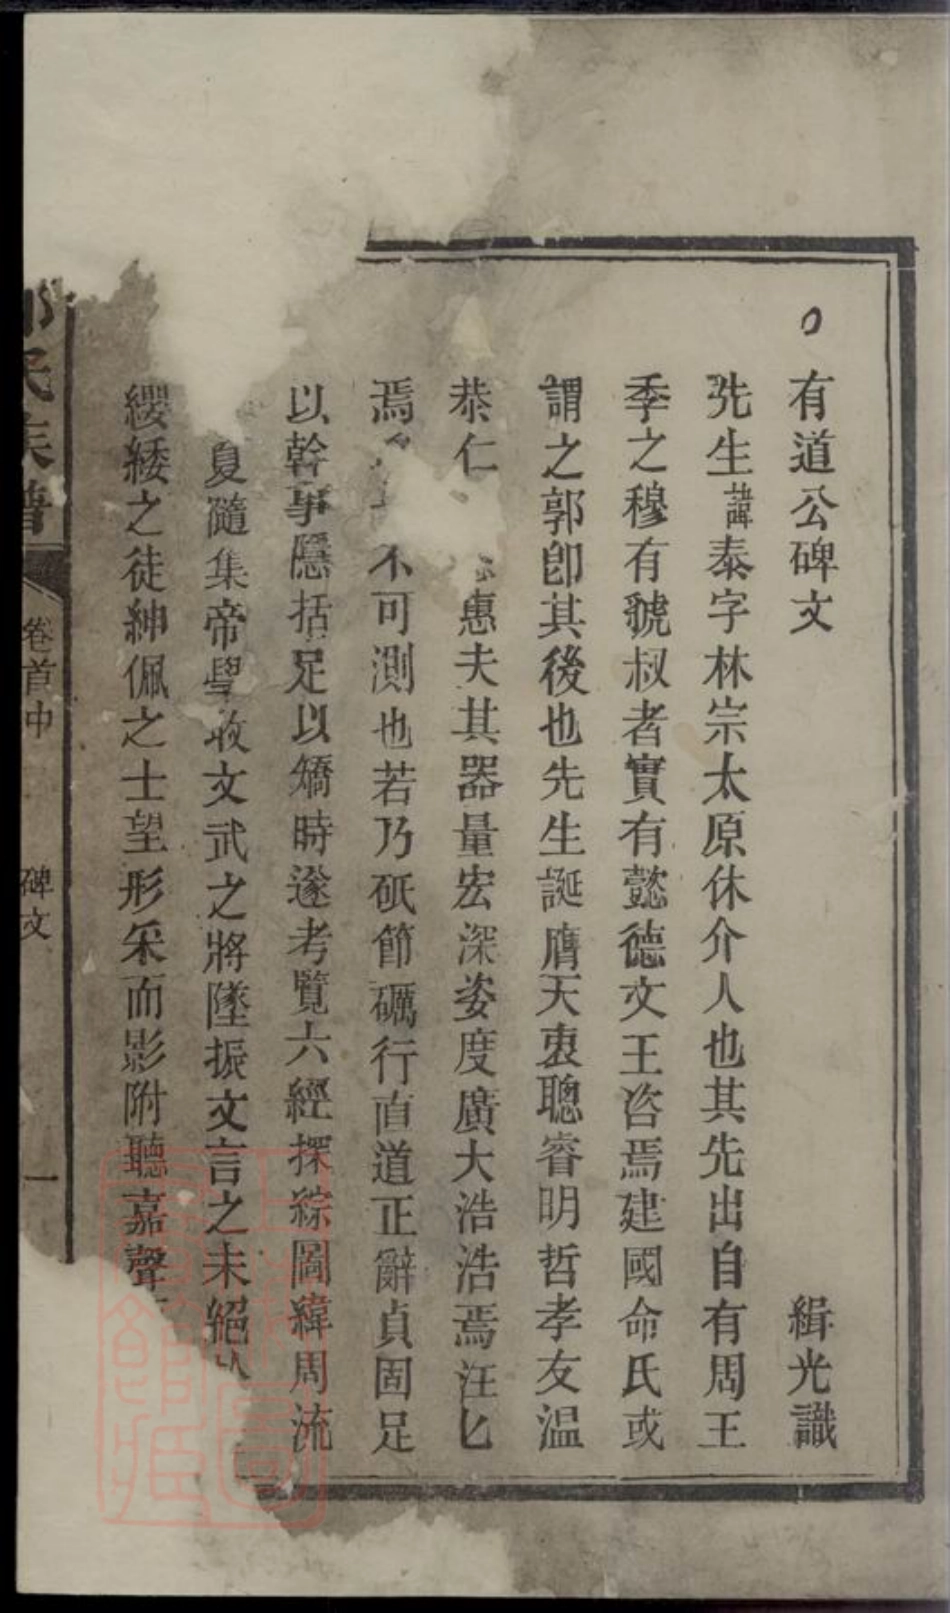 有道公碑文 緝光識
先生諱泰字林宗太原休介人也其先出自有周王
季之穆有虢叔者實有懿德文王咨焉建國命氏或
謂之郭卽其後也先生誕膺天衷聰睿明哲孝友温
恭仁惠夫其器量宏深姿度廣大浩浩焉汪匕
焉不可測也若乃砥節礪行直道正辭貞固足
以幹事隱括足以矯時遂考覽六經探綜圖緯周流
夏隨集帝學收文武之將墜振文言之未絕
纓緌之徒紳佩之士望形采而影附聽嘉聲
氏族譜
卷首中
碑文
一